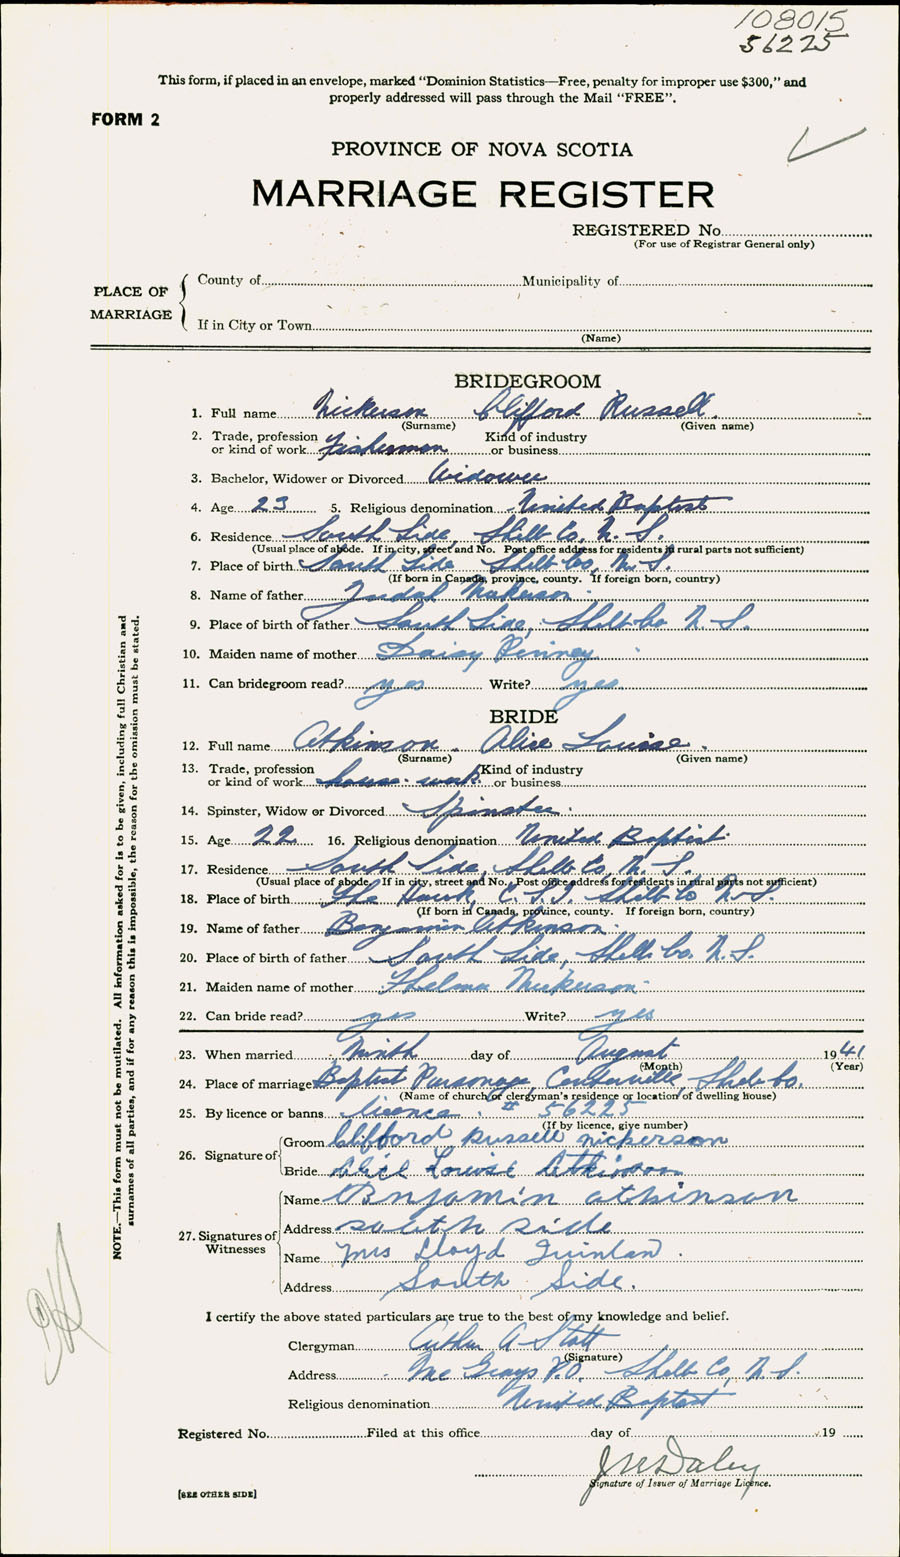 108015
56225
This form, if placed in an envelope, marked "Dominion Statistics—Free, penalty for improper use $300," and
properly addressed will pass through the Mail "FREE".
FORM 2
PROVINCE OF NOVA SCOTIA
MARRIAGE REGISTER
REGISTERED No.
(For use of Registrar General only)
PLACE OF MARRIAGE
County of Municipality of
If in City or Town
(Name)
BRIDEGROOM
1. Full name Nickerson Clifford Russell.
(Surname) (Given name)
2. Trade, profession or kind of work Fisherman Kind of industry or business
3. Bachelor, Widower or Divorced Widower
4. Age 23 5. Religious denomination United Baptist
6. Residence South Side, Shelb Co. N. S.
(Usual place of abode. If in city, street and No. Post office address for residents in rural parts not sufficient)
7. Place of birth South Side Shelb Co, N. S.
(If born in Canada, province, county. If foreign born, country)
8. Name of father Judah Nickerson
9. Place of birth of father South Side, Shelb Co N. S.
10. Maiden name of mother Daisy Penney
11. Can bridegroom read? yes Write? yes
BRIDE
12. Full name Atkinson. Alice Louise.
(Surname) (Given name)
13. Trade, profession or kind of work house-work Kind of industry or business
14. Spinster, Widow or Divorced Spinster.
15. Age 22 16. Religious denomination United Baptist
17. Residence South Side, Shelb Co, N. S.
(Usual place of abode. If in city, street and No. Post office address for residents in rural parts not sufficient)
18. Place of birth The Hawk, C. S. I. Shelb Co N. S.
(If born in Canada, province, county. If foreign born, country)
19. Name of father Benjamin Atkinson.
20. Place of birth of father South Side, Shelb Co. N. S.
21. Maiden name of mother Thelma Nickerson
22. Can bride read? yes Write? yes
23. When married Ninth day of August 1941
(Month) (Year)
24. Place of marriage Baptist Parsonage, Centerville, Shelb Co.
(Name of church or clergyman's residence or location of dwelling house)
25. By licence or banns licence. # 56225
(If by licence, give number)
26. Signature of
Groom Clifford Russell nickerson
Bride Alice Louise Atkinson
27. Signatures of Witnesses
Name Benjamin atkinson
Address south side
Name Mrs Lloyd Quinlan.
Address South Side.
I certify the above stated particulars are true to the best of my knowledge and belief.
Clergyman Arthur A Stott
(Signature)
Address Mc Grays P.O. Shelb Co, N. S.
Religious denomination United Baptist
Registered No. Filed at this office day of 19
J M Daley
Signature of Issuer of Marriage Licence.
[SEE OTHER SIDE]
NOTE.—This form must not be mutilated. All information asked for is to be given, including full Christian and
surnames of all parties, and if for any reason this is impossible, the reason for the omission must be stated.